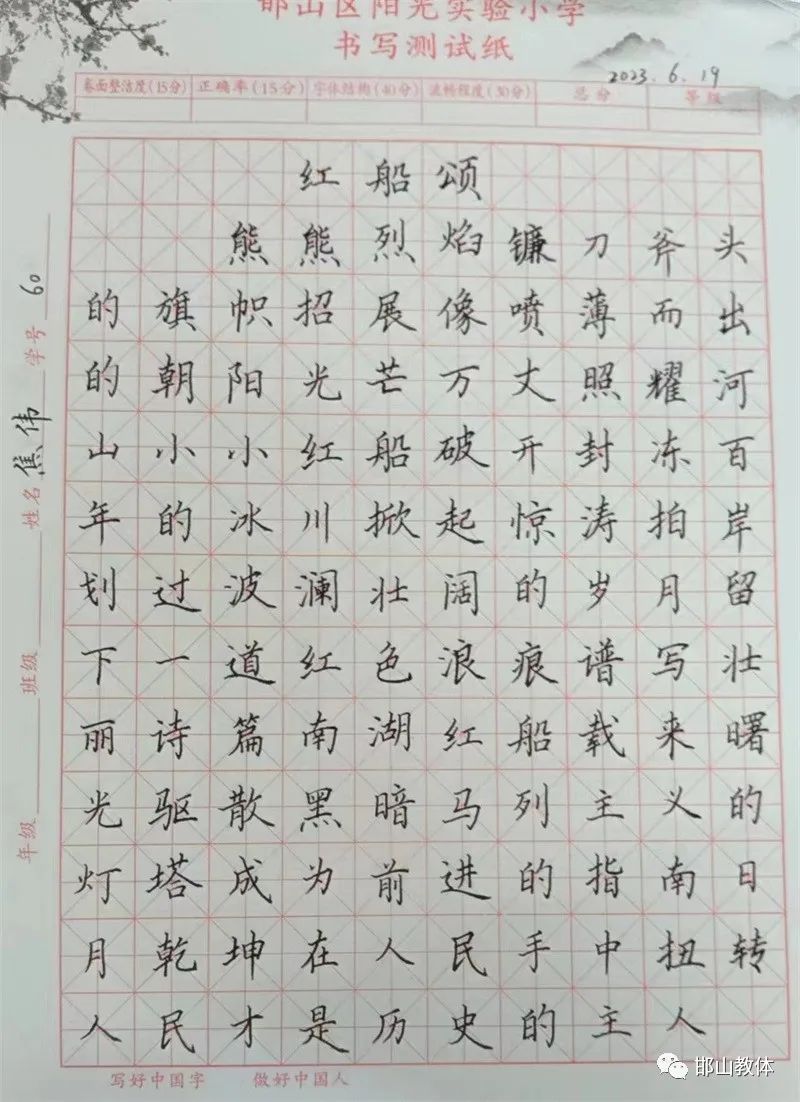 邯山区阳光实验小学
书写测试纸
2023.6.19
卷面整洁度(15分) 正确率(15分) 字体结构(40分) 流畅程度(30分) 总分 等级
红船颂
熊熊烈焰镰刀斧头
的旗帜招展像喷薄而出
的朝阳光芒万丈照耀河
山小小红船破开封冻百
年的冰川掀起惊涛拍岸
划过波澜壮阔的岁月留
下一道红色浪痕谱写壮
丽诗篇南湖红船载来曙
光驱散黑暗马列主义的
灯塔成为前进的指南日
月乾坤在人民手中扭转
人民才是历史的主人
年级 班级 姓名 焦伟 学号 60
写好中国字 做好中国人
邯山教体